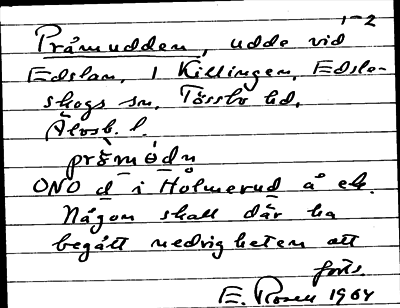 1-2
Pråmudden, udde vid
Edslan, i Killingen, Edsle-
skogs sn, Tössbo hd,
Älvsb. l.
prå̀mȯ́dn
ONO d i Holmerud å ek.
Någon skall där ha
begått nedrigheten att
forts.
E. Rosell 1964